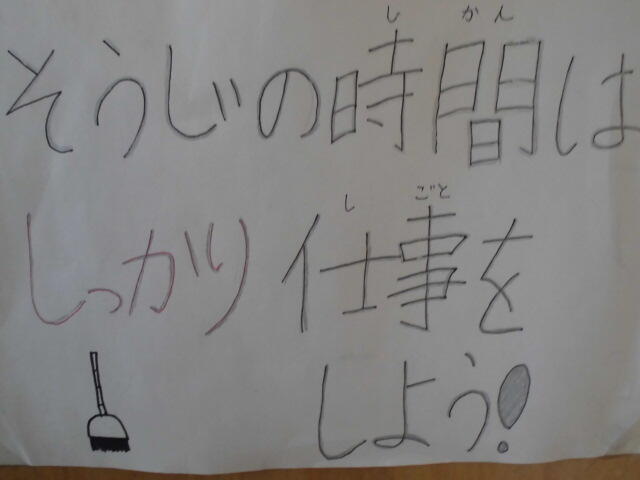 しかん
そうじの時間は
しごと
しっかり仕事を
しよう!